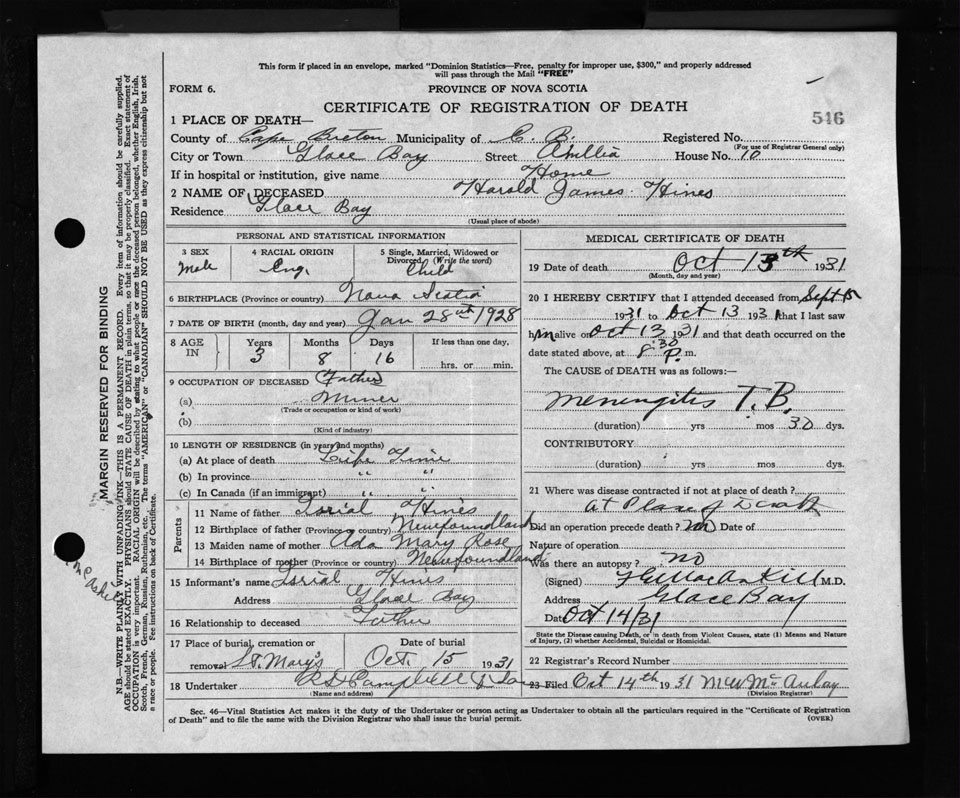 This form if placed in an envelope, marked "Dominion Statistics—Free, penalty for improper use, $300," and properly addressed
will pass through the Mail "FREE"
FORM 6.
PROVINCE OF NOVA SCOTIA
CERTIFICATE OF REGISTRATION OF DEATH
546
1 PLACE OF DEATH—
County of Cape Breton Municipality of C. B. Registered No.
(For use of Registrar General only)
City or Town Glace Bay Street House No. 10
If in hospital or institution, give name Home
2 NAME OF DECEASED Harold James Hines
Residence Glace Bay
(Usual place of abode)
PERSONAL AND STATISTICAL INFORMATION
3 SEX
Male
4 RACIAL ORIGIN
Eng.
5 Single, Married, Widowed or
Divorced (Write the word)
Child
6 BIRTHPLACE (Province or country) Nova Scotia
7 DATE OF BIRTH (month, day and year) Jan 28th 1928
8 AGE IN
Years 3
Months 8
Days 16
If less than one day,
hrs. or min.
9 OCCUPATION OF DECEASED (Father)
(a) Miner
(Trade or occupation or kind of work)
(b)
(Kind of industry)
10 LENGTH OF RESIDENCE (in years and months)
(a) At place of death Life Time
(b) In province " "
(c) In Canada (if an immigrant) " "
Parents
11 Name of father Hines
12 Birthplace of father (Province or country) Newfoundland
13 Maiden name of mother Ada Mary Rose
14 Birthplace of mother (Province or country) Newfoundland
15 Informant's name Hines
Address Glace Bay
16 Relationship to deceased Father
17 Place of burial, cremation or
removal St. Mary's
Date of burial
Oct. 15 1931
18 Undertaker Campbell
(Name and address)
MEDICAL CERTIFICATE OF DEATH
19 Date of death Oct 13th 1931
(Month, day and year)
20 I HEREBY CERTIFY that I attended deceased from Sept 15
1931 to Oct 13 1931 that I last saw
him alive on Oct 13 1931 and that death occurred on
date stated above, at 8:30 P. m.
The CAUSE of DEATH was as follows:—
Meningitis T.B.
(duration) yrs mos 30 dys.
CONTRIBUTORY
(duration) yrs mos dys.
21 Where was disease contracted if not at place of death?
At Place of Death
Did an operation precede death? No Date of
Nature of operation
Was there an autopsy? No
(Signed) M.D.
Address Glace Bay
Date Oct 14/31
State the Disease causing Death, or in death from Violent Causes, state (1) Means and Nature
of Injury, (2) whether Accidental, Suicidal or Homicidal.
22 Registrar's Record Number
23 Filed Oct 14th 1931 McAulay
(Division Registrar)
Sec. 46—Vital Statistics Act makes it the duty of the Undertaker or person acting as Undertaker to obtain all the particulars required in the "Certificate of Registration
of Death" and to file the same with the Division Registrar who shall issue the burial permit.
(OVER)
MARGIN RESERVED FOR BINDING
N.B.—WRITE PLAINLY WITH UNFADING INK—THIS IS A PERMANENT RECORD. Every item of information should be carefully supplied.
AGE should be stated EXACTLY. PHYSICIANS should STATE CAUSE OF DEATH in plain terms, so that it may be properly classified. Exact statement of
OCCUPATION is very important. RACIAL ORIGIN will be described by stating to what people or race the deceased person belonged, whether English, Irish,
Scotch, French, German, Russian, Ruthenian, etc. The terms "AMERICAN" or "CANADIAN" SHOULD NOT BE USED as they express citizenship but not
a race or people. See instructions on back of Certificate.